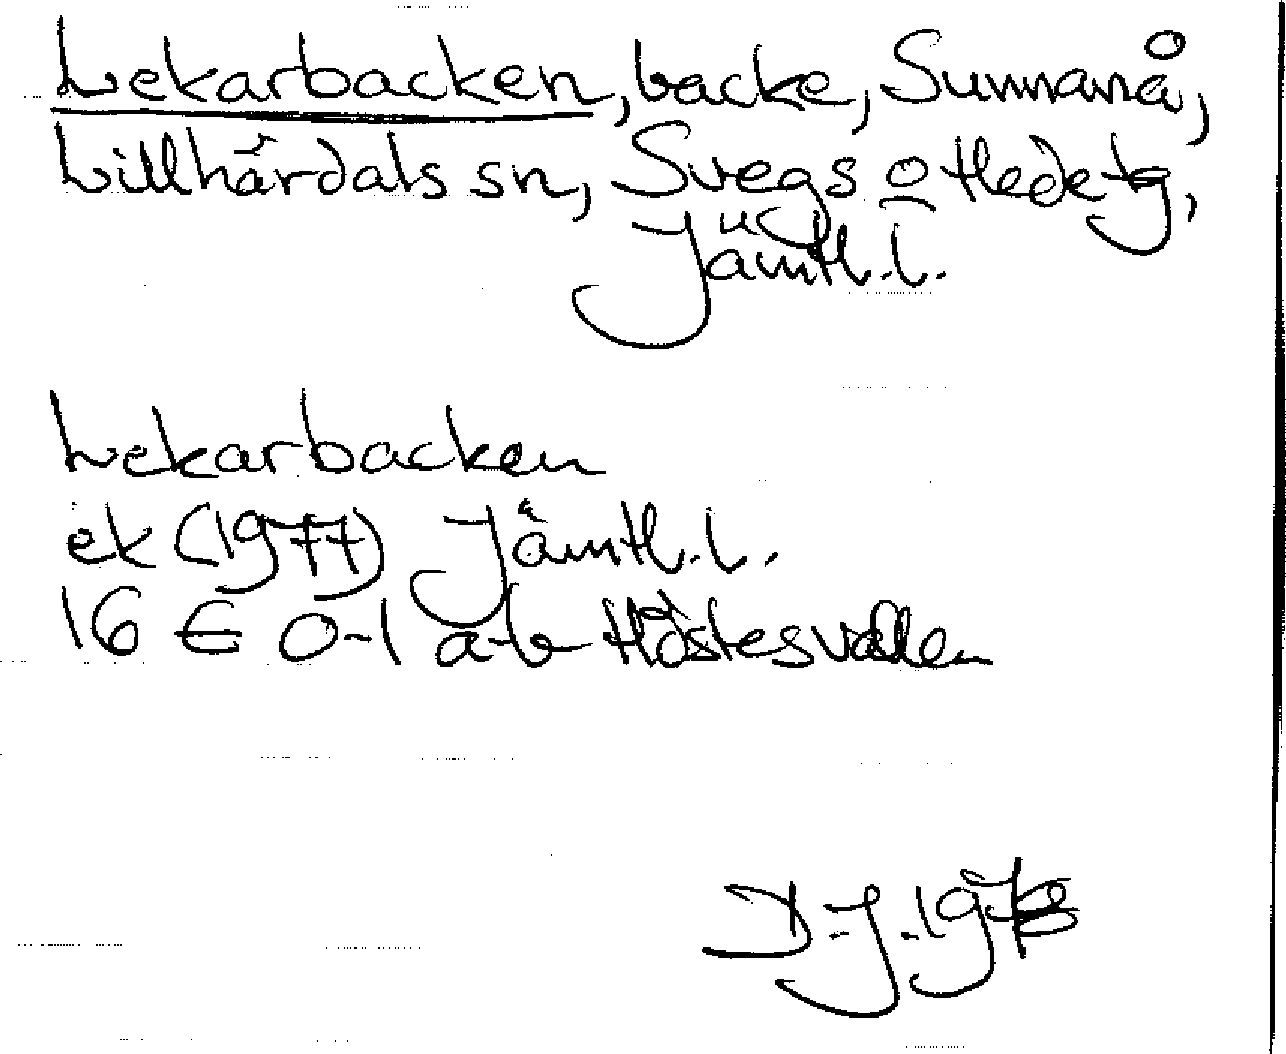 Lekarbacken, backe, Sunnanå,
Lillhärdals sn, Svegs o Hede tg,
Jämtl. l.
Lekarbacken
ek (1977) Jämtl. l.
16 E 0-1 a-b Höstesvallen
D.J. 1978